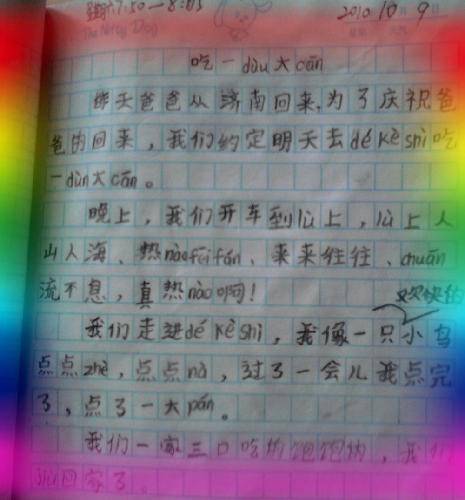 7:50-8:05
2010 10月9日
The Noisy Dog
吃一dùn大cān
昨天爸爸从济南回来,为了庆祝爸
爸的回来,我们约定明天去dé kè shì吃
一dùn大cān。
晚上,我们开车到lù上,lù上人
山人海、热nào fēi fán、来来往往、chuān
流不息,真热nào啊!
欢快的
我们走进dé kè shì,我像一只小鸟
点点zhè,点点nà,过了一会儿我点完
了,点了一大pán。
我们一家三口吃的饱饱的,我们
回家了。